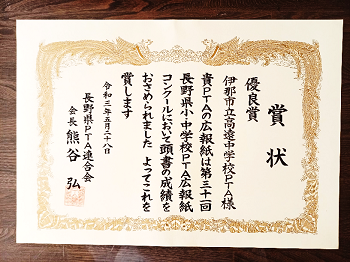 賞状
優良賞
伊那市立高遠中学校PTA様
貴PTAの広報紙は第三十一回
長野県小・中学校PTA広報紙
コンクールにおいて頭書の成績を
おさめられました よってこれを
賞します
令和三年五月二十八日
長野県PTA連合会
会長 熊谷 弘